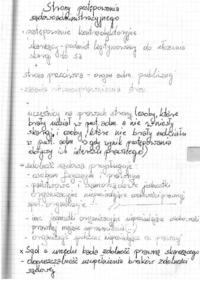 Strony postępowania
sądowoadministracyjnego
- postępowanie kontradyktoryjne
skarżący - podmiot legitymowany do złożenia
skargi do SA
strona przeciwna - organ adm. publicznej
- zasada równouprawnienia stron
uczestnicy na prawach strony (osoby, które
brały udział w post. adm. a nie wniosły
skargi, i osoby, które nie brały udziału
w post. adm. a gdy wynik postępowania
dotyczy ich interesu prawnego)
zdolność sądowa przysługuje:
- osobom fizycznym i prawnym
- państwowe i samorządowe jednostki
organizacyjne nieposiadające osobowości prawnej
- organizacje społeczne nieposiadające os. prawnej
x Sąd z urzędu bada zdolność prawną skarżącego
- dopuszczalność uzupełnienia braków zdolności
sądowej